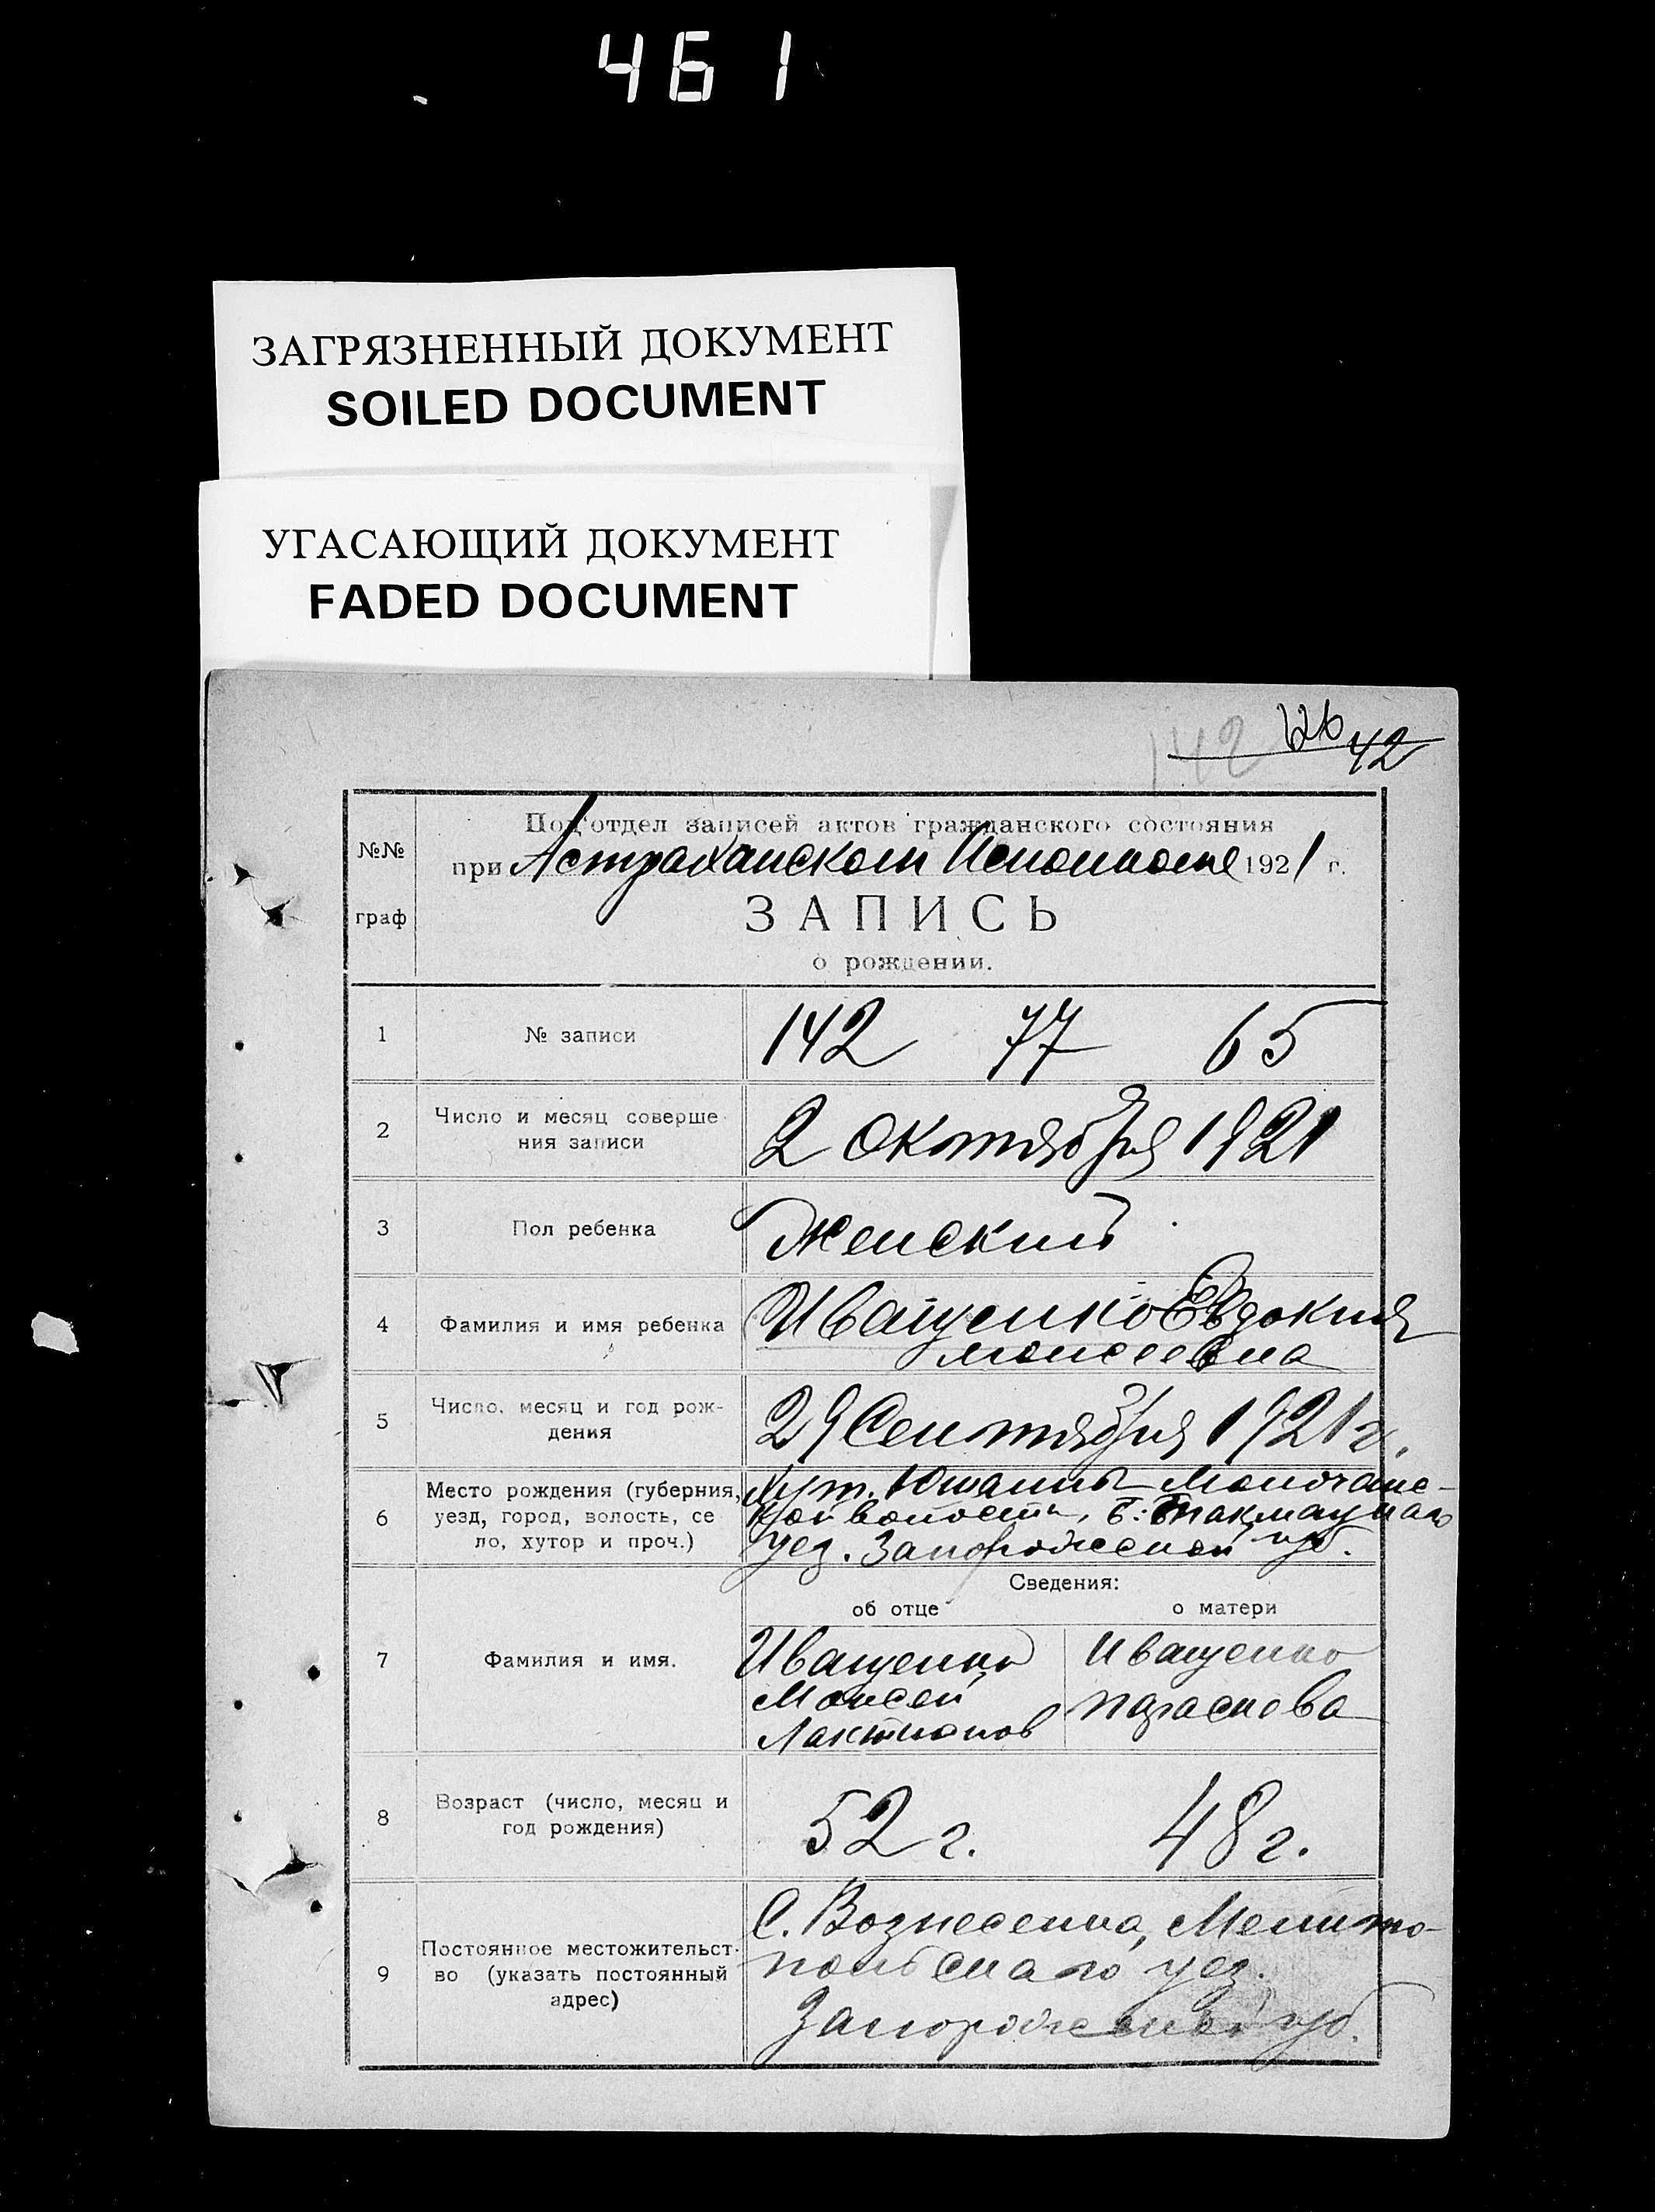 461
ЗАГРЯЗНЕННЫЙ ДОКУМЕНТ
SOILED DOCUMENT
УГАСАЮЩИЙ ДОКУМЕНТ
FADED DOCUMENT
142 42
№№ граф
Под'отдел записей актов гражданского состояния
при Астраханском Исполкоме 1921 г.
ЗАПИСЬ
о рождении.
1 № записи 142 77 65
2 Число и месяц соверше
ния записи 2 Октября 1921
3 Пол ребенка Женский
4 Фамилия и имя ребенка Иващенко Евдокия
Моисеевна
5 Число, месяц и год рож-
дения 29 Сентября 1921 г.
6 Место рождения (губерния,
уезд, город, волость, се
ло, хутор и проч.)
Хут. Юшанль Молочанс-
кой волости, Б. Токмацкаго
уез. Запорожской губ.
Сведения:
об отце о матери
7 Фамилия и имя.
Иващенко
Моисей
Лактионов
Иващенко
8 Возраст (число, месяц и
год рождения) 52 г. 48 г.
9 Постоянное местожительст-
во (указать постоянный
адрес)
С. Вознесенка, Мелито-
польскаго уез.
Запорожской губ.